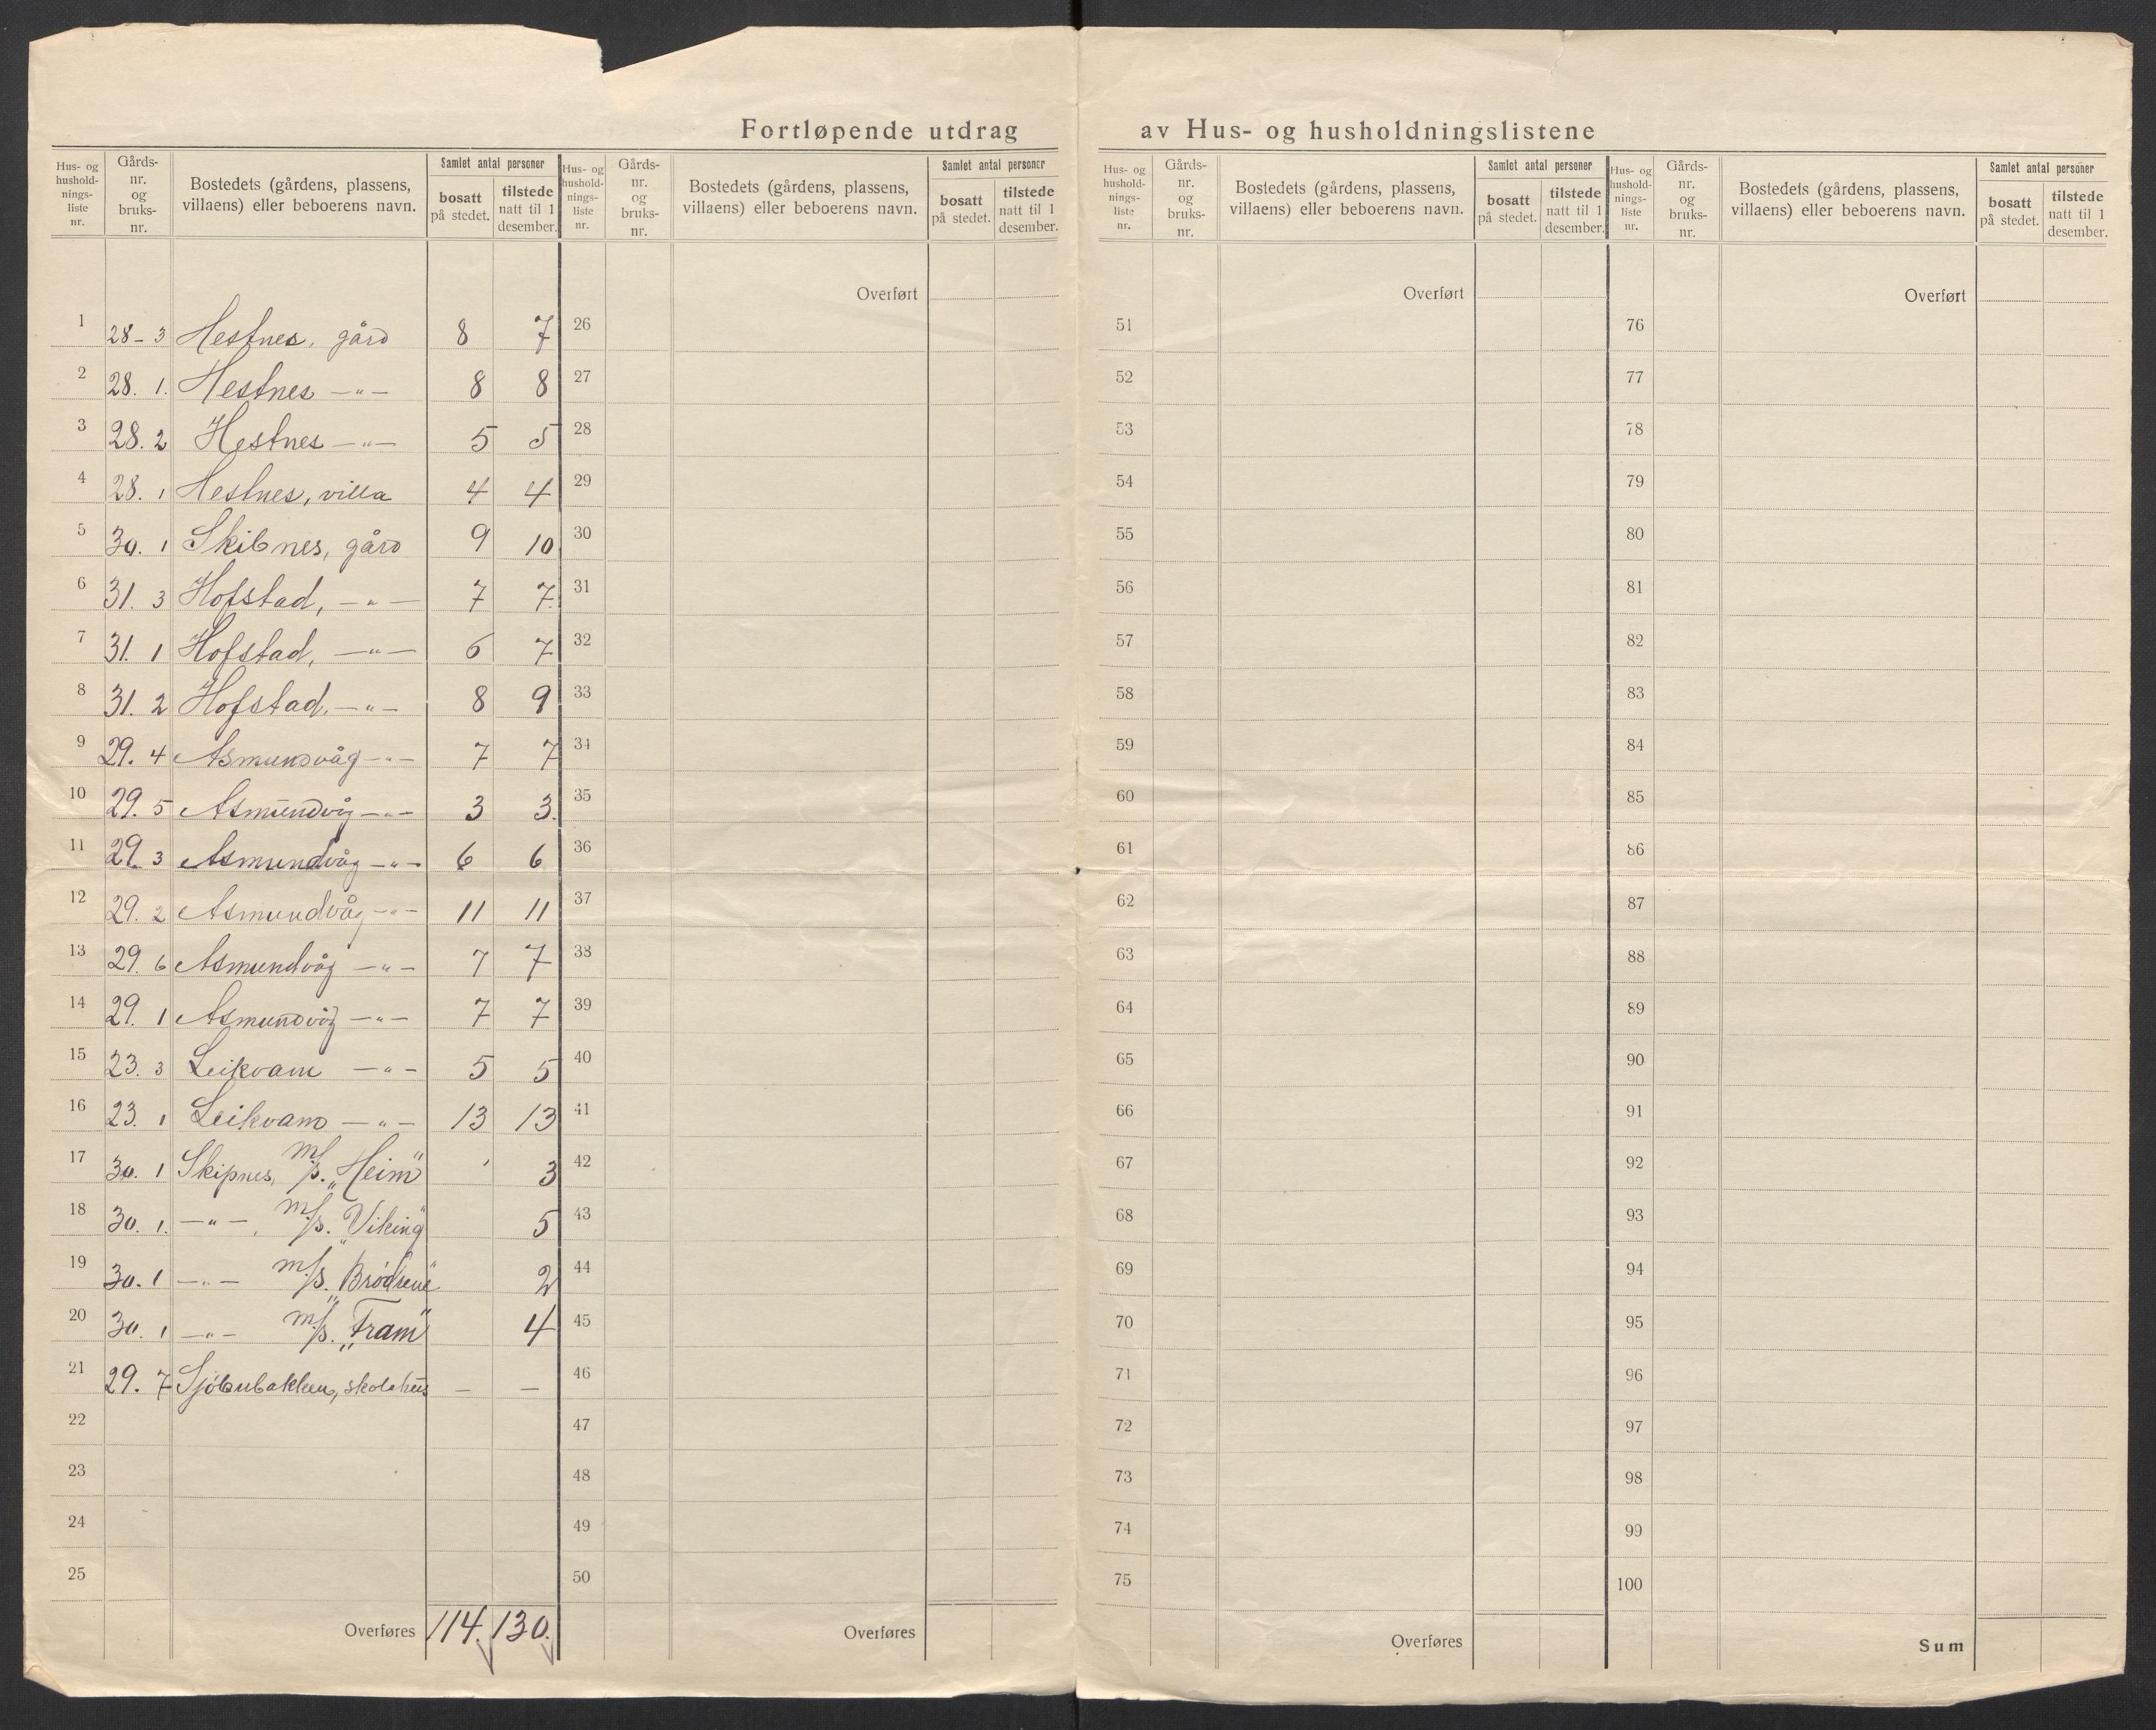 Fortløpende utdrag av Hus- og husholdningslistene
Hus- og hushold-nings-liste nr. | Gårds-nr. og bruks-nr. | Bostedets (gårdens, plassens, villaens) eller beboerens navn. | Samlet antal personer | bosatt på stedet. | tilstede natt til 1 desember.
Hus- og hushold-nings-liste nr. | Gårds-nr. og bruks-nr. | Bostedets (gårdens, plassens, villaens) eller beboerens navn. | Samlet antal personer | bosatt på stedet. | tilstede natt til 1 desember.
Hus- og hushold-nings-liste nr. | Gårds-nr. og bruks-nr. | Bostedets (gårdens, plassens, villaens) eller beboerens navn. | Samlet antal personer | bosatt på stedet. | tilstede natt til 1 desember.
Hus- og hushold-nings-liste nr. | Gårds-nr. og bruks-nr. | Bostedets (gårdens, plassens, villaens) eller beboerens navn. | Samlet antal personer | bosatt på stedet. | tilstede natt til 1 desember.
1 28-3 Hestnes, gård 8 7
2 28. 1. Hestnes —"— 8 8
3 28. 2 Hestnes —"— 5 5
4 28. 1 Hestnes, villa 4 4
5 30. 1 Skibnes, gård 9 10
6 31. 3 Hofstad, —"— 7 7.
7 31. 1 Hofstad, —"— 6 7
8 31. 2 Hofstad. —"— 8 9
9 29. 4 Asmundvåg —"— 7 7
10 29. 5 Asmundvåg —"— 3 3.
11 29. 3 Asmundvåg —"— 6 6
12 29. 2 Asmundvåg —"— 11 11
13 29. 6 Asmundvåg —"— 7 7
14 29. 1 Asmundvåg —"— 7 7
15 23. 3 Leikvam —"— 5 5
16 23. 1 Leikvam —"— 13 13
17 30. 1 Skipnes, m/s. „Heim" 3
18 30. 1. —"—, m/s. „Viking" 5
19 30. 1 —"— m/s. „Brødrene" 2
20 30. 1 —"— m/s. „Fram" 4
21 29. 7 Sjöbubakken, skolehus — —
22
23
24
25
Overføres 114. 130.
Overført
26
27
28
29
30
31
32
33
34
35
36
37
38
39
40
41
42
43
44
45
46
47
48
49
50
Overføres
Overført
51
52
53
54
55
56
57
58
59
60
61
62
63
64
65
66
67
68
69
70
71
72
73
74
75
Overføres
Overført
76
77
78
79
80
81
82
83
84
85
86
87
88
89
90
91
92
93
94
95
96
97
98
99
100
Sum